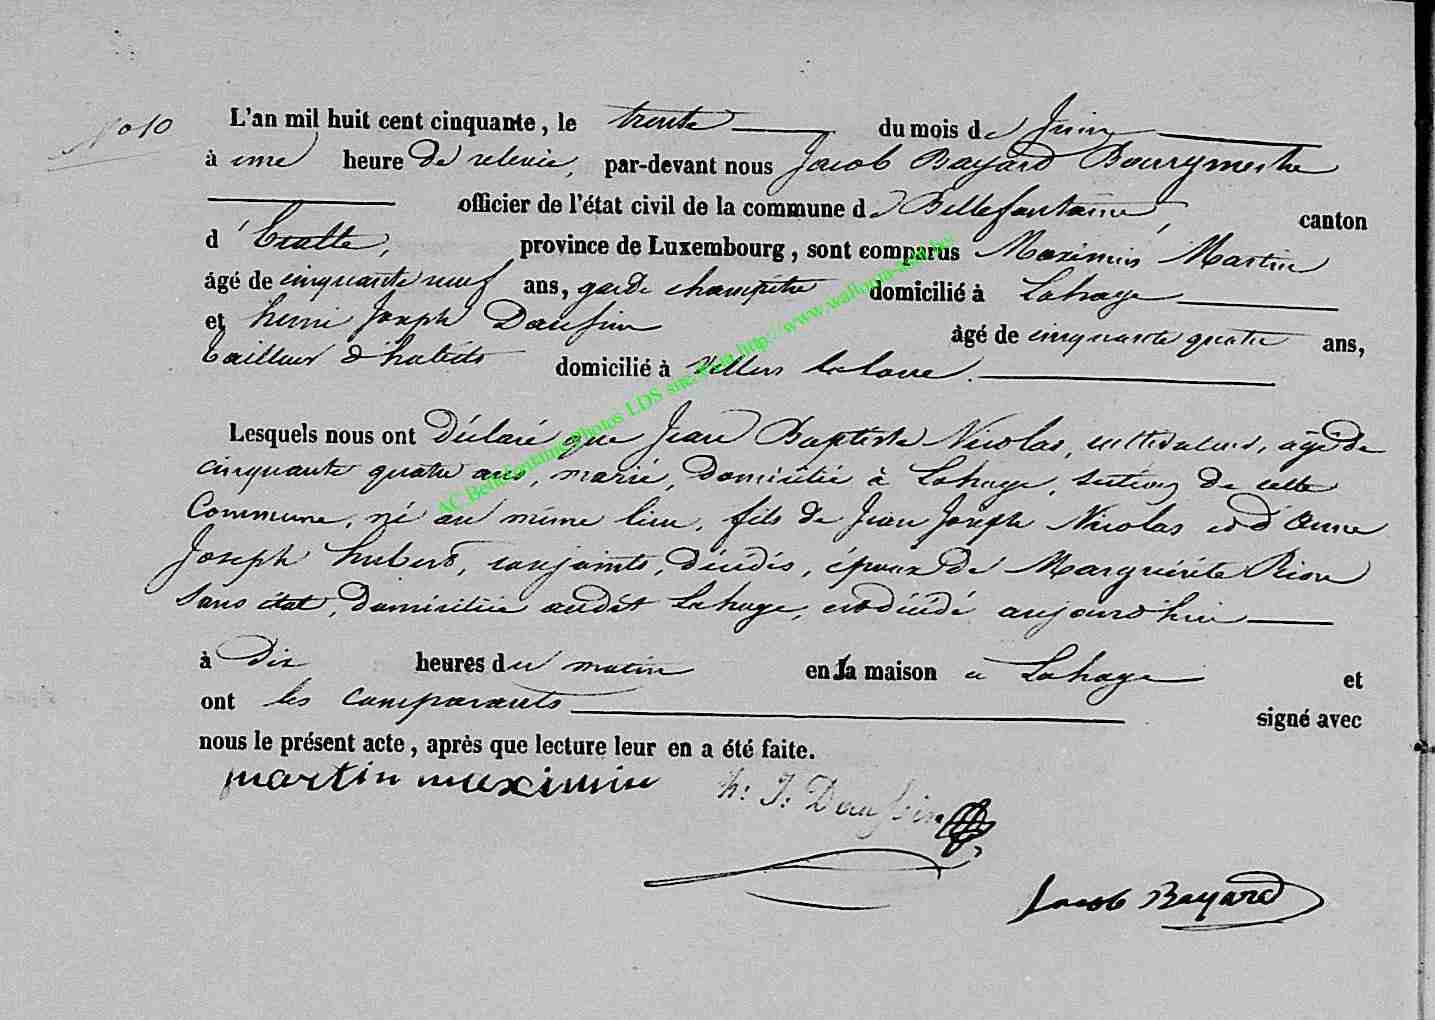 No 10
L'an mil huit cent cinquante, le trente du mois de Juin
à une heure de relevée, par-devant nous Jacob Bayard Bourgmestre
officier de l'état civil de la commune de Bellefontaine, canton
d'Etalle, province de Luxembourg, sont comparus Maximin Martin
âgé de cinquante neuf ans, garde champêtre domicilié à Lahage
et henri Joseph Daufin âgé de cinquante quatre ans,
tailleur d'habits domicilié à Villers la loue.
Lesquels nous ont Déclaré que Jean Baptiste Nicolas, cultivateur, âgé de
cinquante quatre ans, marié, domicilié à Lahage, section de cette
Commune, né au même lieu, fils de Jean Joseph Nicolas et d'Anne
Joseph hubert, conjoints, décédés, époux de Marguérite Rion
sans état, domiciliée audit Lahage, est décédé aujourd'hui
à Dix heures du matin en la maison à Lahage et
ont les comparants signé avec
nous le présent acte, après que lecture leur en a été faite.
martin maximin h: J: Daufin
Jacob Bayard
AC Bellefontaine Photos LDS sur http://www.wallonia-asbl.be/